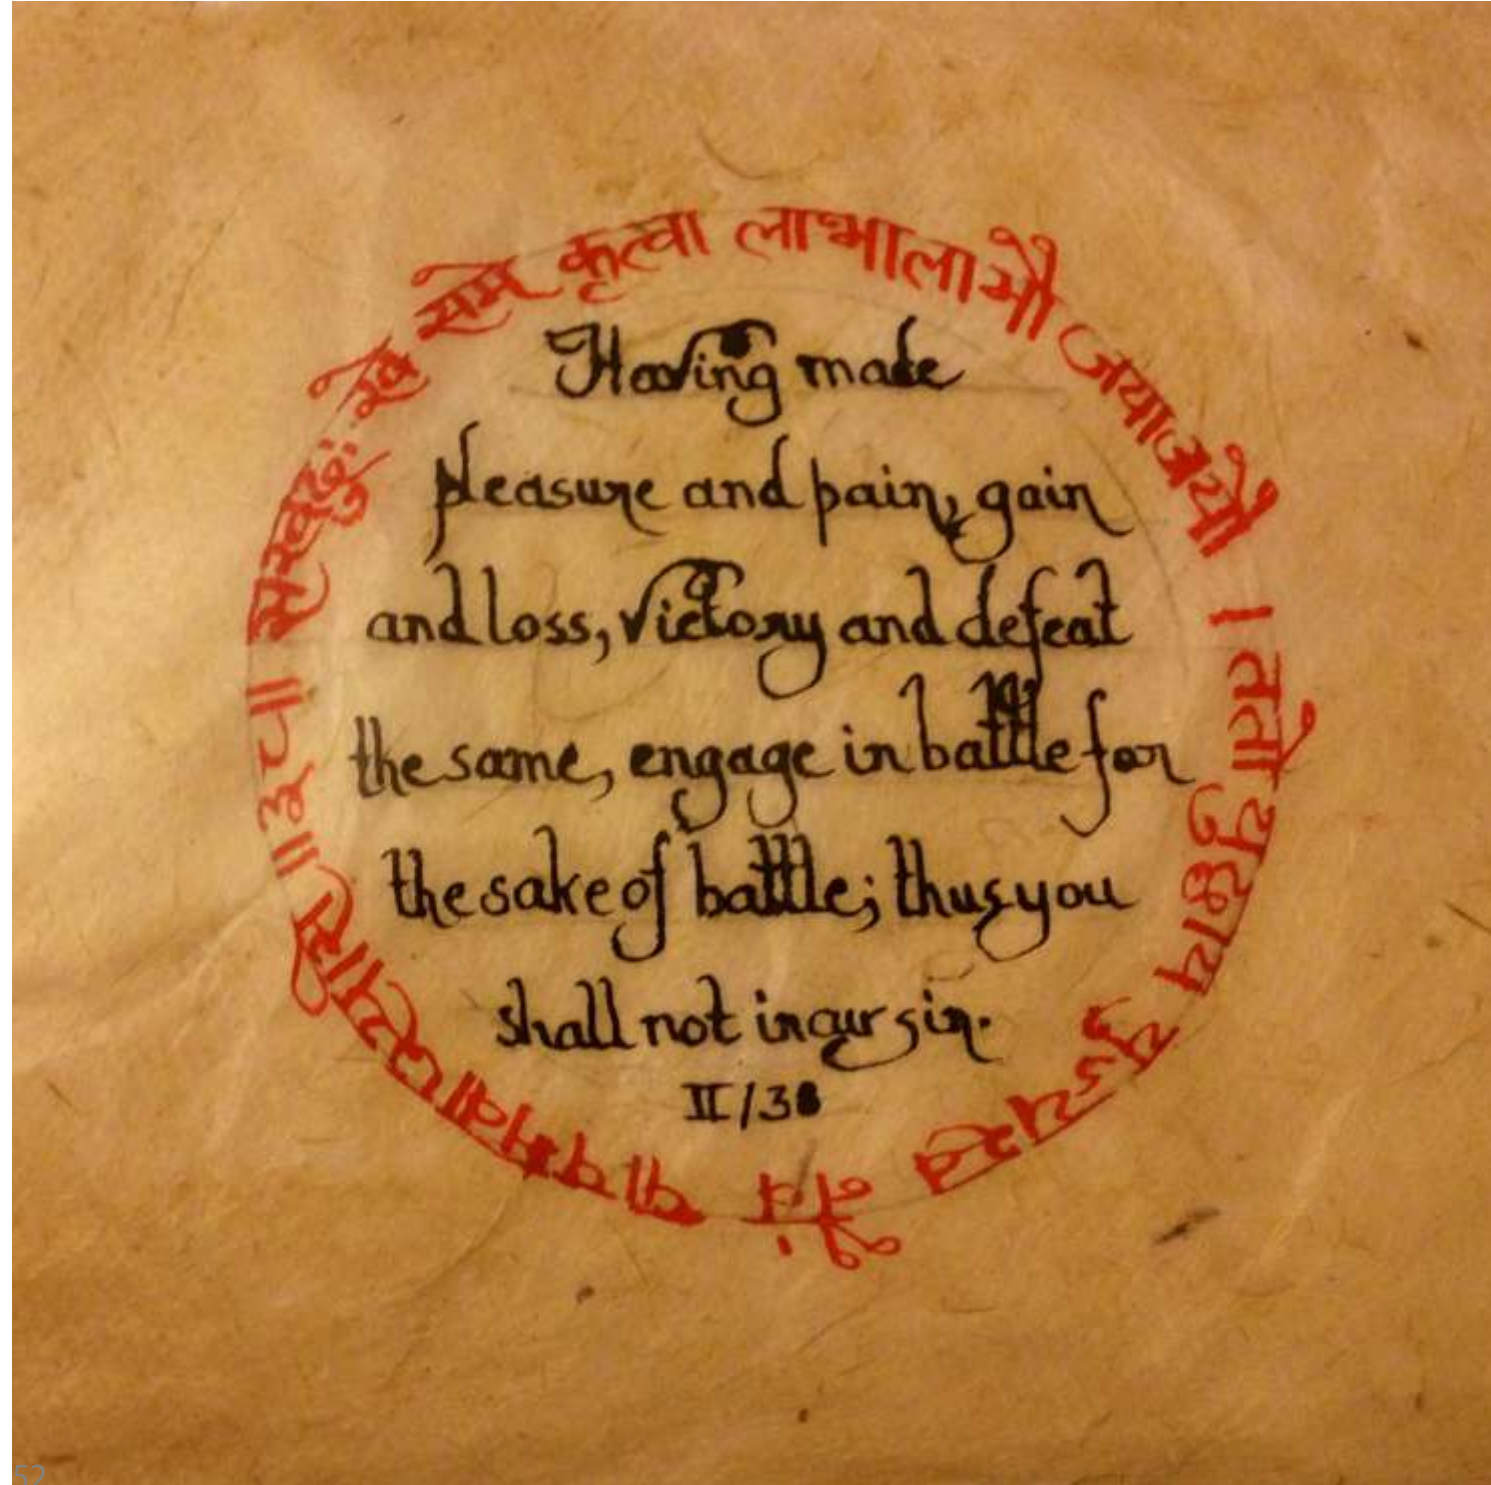 सुखदुःखे समे कृत्वा लाभालाभौ जयाजयौ । ततो युद्धाय युज्यस्व नैवं पापमवाप्स्यसि ॥३८॥
Having made
pleasure and pain, gain
and loss, victory and defeat
the same, engage in battle for
the sake of battle; thus you
shall not incur sin.
II/38
52